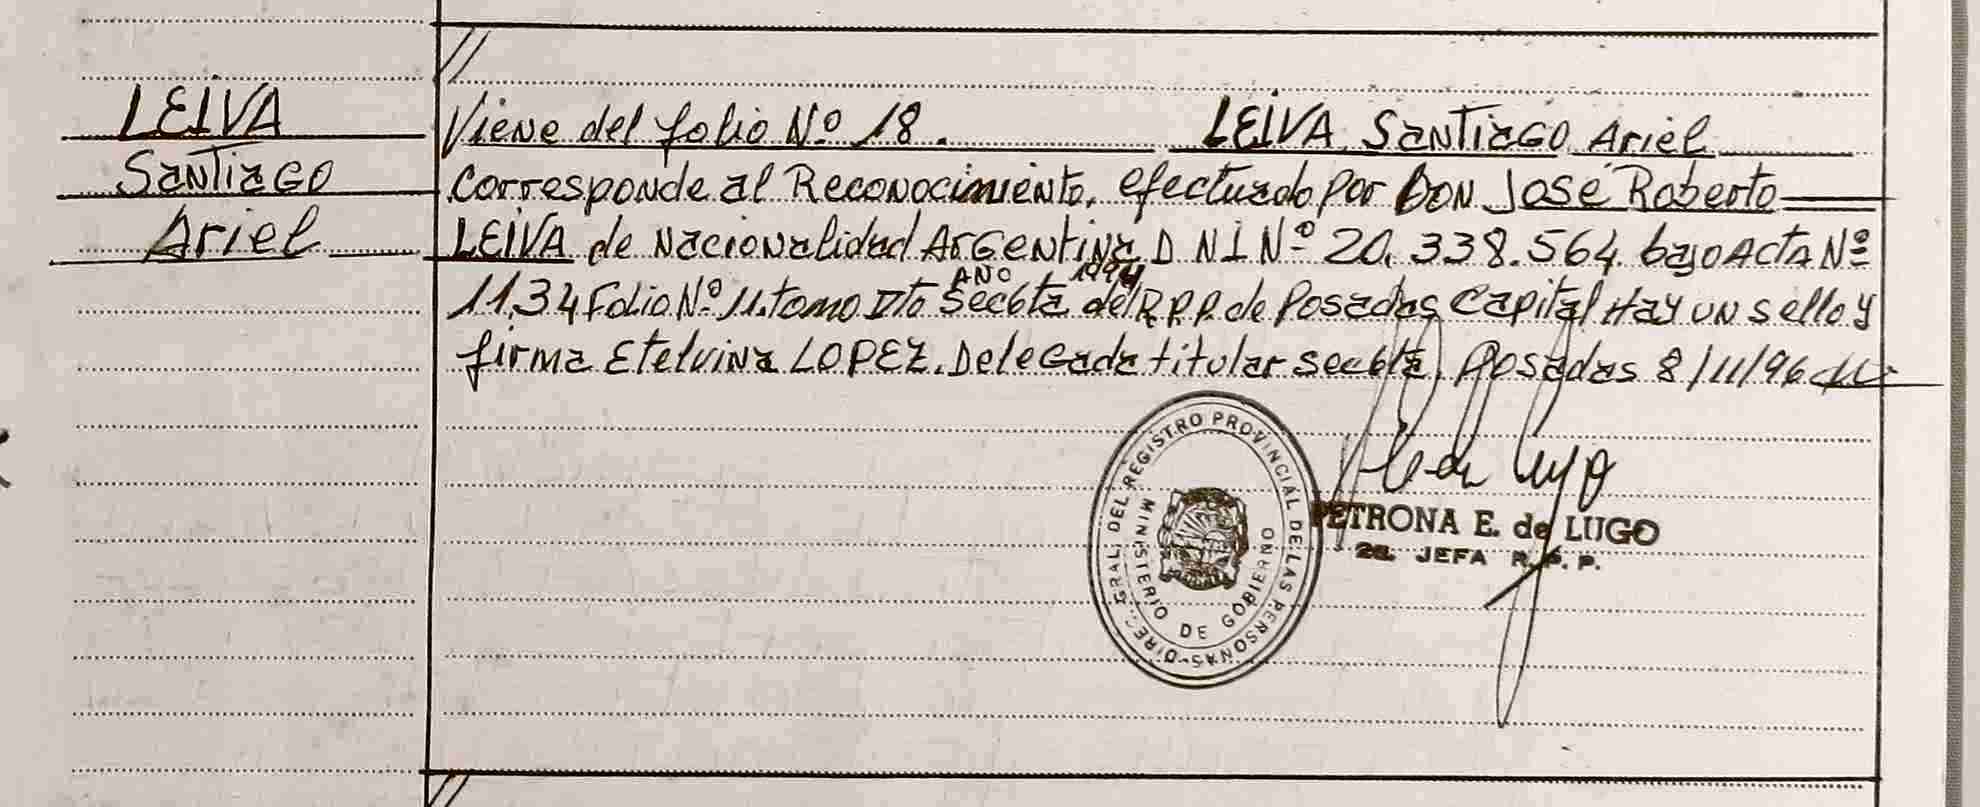 LEIVA
Santiago
Ariel
//
Viene del folio Nº 18. LEIVA Santiago Ariel
Corresponde al Reconocimiento, efectuado por Don José Roberto
LEIVA de Nacionalidad Argentina D N I Nº 20.338.564 bajo Acta Nº
AÑO 1994
1134 Folio Nº 11. tomo Dto Secc 6ta del R.P.P. de Posadas Capital Hay un sello y
firma Etelvina LOPEZ. Delegada titular secc 6ta. Posadas 8/11/96
DIREC. GRAL. DEL REGISTRO PROVINCIAL DE LAS PERSONAS
MINISTERIO DE GOBIERNO
PETRONA E. de LUGO
2a. JEFA R.P.P.
//